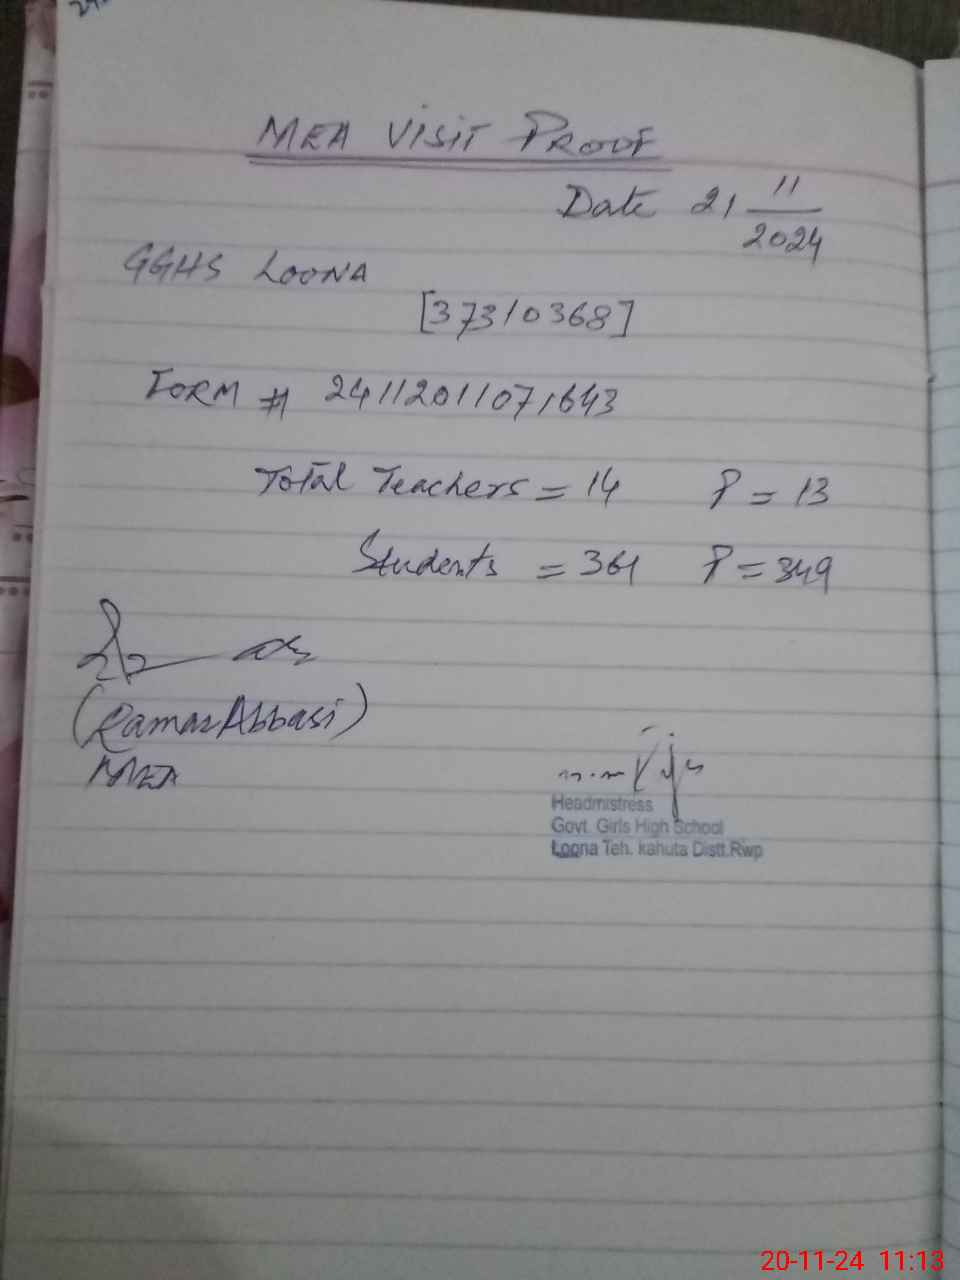 MEA VISIT PROOF
Date 21 11/2024
GGHS LOONA
[37310368]
FORM # 24112011071643
Total Teachers = 14 P = 13
Students = 361 P = 349
(Qamar Abbasi)
MEA
Headmistress
Govt. Girls High School
Loona Teh. kahuta Distt.Rwp
20-11-24 11:13